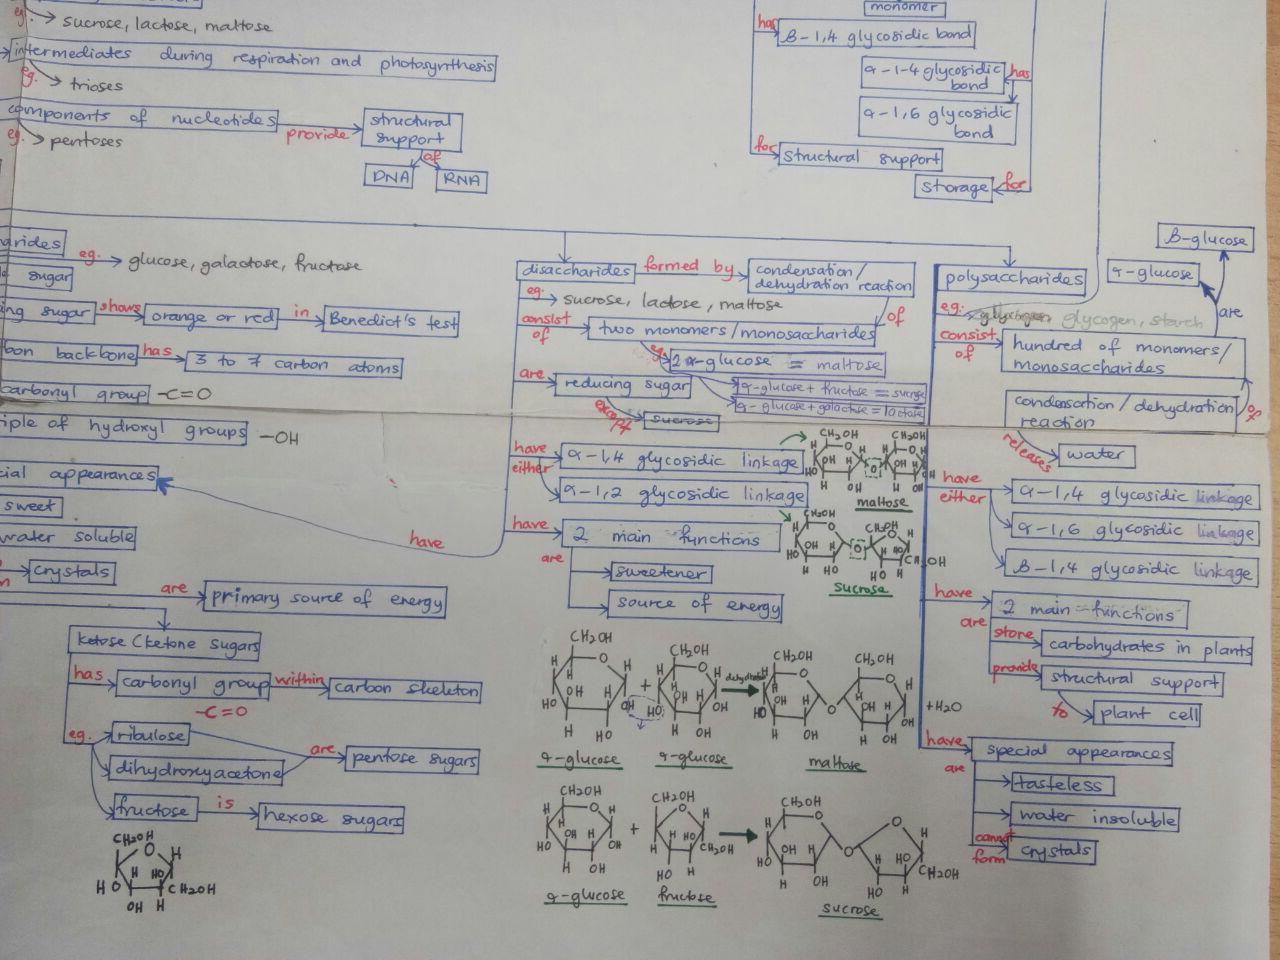 eg.
sucrose, lactose, maltose
intermediates during respiration and photosynthesis
eg.
trioses
components of nucleotides
provide
structural
support
eg.
pentoses
of
DNA
RNA
monomer
has
β-1,4 glycosidic bond
α-1-4 glycosidic
bond
has
α-1,6 glycosidic
bond
for
structural support
storage
for
arides
eg.
glucose, galactose, fructose
sugar
ing sugar
shows
orange or red
in
Benedict's test
bon backbone
has
3 to 7 carbon atoms
carbonyl group
-C=O
iple of hydroxyl groups
-OH
cial appearances
have
sweet
water soluble
crystals
are
primary source of energy
ketose (ketone sugars
has
carbonyl group
within
carbon skeleton
-C=O
eg.
ribulose
dihydroxyacetone
are
pentose sugars
fructose
is
hexose sugars
CH2OH
O
H
H
HO
H
O
CH2OH
OH
H
disaccharides
formed by
condensation/
dehydration reaction
eg.
sucrose, lactose, maltose
of
consist
of
two monomers/monosaccharides
eg.
2 α-glucose = maltose
are
reducing sugar
α-glucose + fructose = sucrose
α-glucose + galactose = lactose
except
sucrose
have
either
α-1,4 glycosidic linkage
α-1,2 glycosidic linkage
maltose
sucrose
have
2 main functions
are
sweetener
source of energy
CH2OH
CH2OH
dehydration
CH2OH
CH2OH
+
+H2O
α-glucose
α-glucose
maltose
CH2OH
CH2OH
CH2OH
+
CH2OH
CH2OH
α-glucose
fructose
sucrose
β-glucose
α-glucose
are
polysaccharides
eg.
glycogen, starch
consist
of
hundred of monomers/
monosaccharides
of
condensation/dehydration
reaction
releases
water
have
either
α-1,4 glycosidic linkage
α-1,6 glycosidic linkage
β-1,4 glycosidic linkage
have
2 main functions
are
store
carbohydrates in plants
provide
structural support
to
plant cell
have
special appearances
are
tasteless
water insoluble
cannot
form
crystals